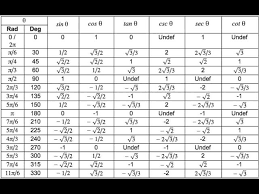 θ sin θ cos θ tan θ csc θ sec θ cot θ
Rad Deg
0 / 2π 0 0 1 0 Undef 1 Undef
π/6 30 1/2 √3/2 √3/3 2 2√3/3 √3
π/4 45 √2/2 √2/2 1 √2 √2 1
π/3 60 √3/2 1/2 √3 2√3/3 2 √3/3
π/2 90 1 0 Undef 1 Undef 0
2π/3 120 √3/2 -1/2 -√3 2√3/3 -2 -√3/3
3π/4 135 √2/2 -√2/2 -1 √2 -√2 -1
5π/6 150 1/2 -√3/2 -√3/3 2 -2√3/3 -√3
π 180 0 -1 0 Undef -1 Undef
7π/6 210 -1/2 -√3/2 √3/3 -2 -2√3/3 √3
5π/4 225 -√2/2 -√2/2 1 -√2 -√2 1
4π/3 240 -√3/2 -1/2 √3 -2√3/3 -2 √3/3
3π/2 270 -1 0 Undef -1 Undef 0
5π/3 300 -√3/2 1/2 -√3 -2√3/3 2 -√3/3
7π/4 315 -√2/2 √2/2 -1 -√2 √2 -1
11π/6 330 -1/2 √3/2 -√3/3 -2 2√3/3 -√3